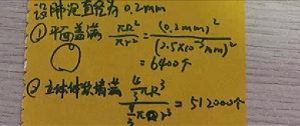 设肺泡直径为0.2mm
①平面盖满 πR²/πr² = (0.2mm)²/(2.5×10⁻³mm)²
= 6400个
②立体体积填满 4/3πR³/4/3πr³ = 512000个